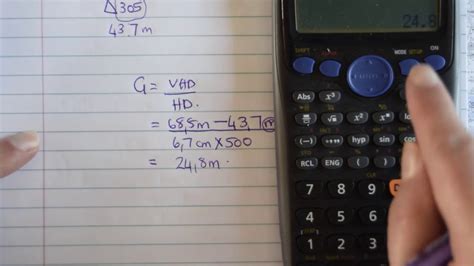 △305
43.7m
G = VHD
HD.
= 68,5m - 43,7m
6,7cm X 500
= 24,8m.
24.8
SHIFT MODE SETUP ON
Abs x³
√ x²
(-) hyp sin
RCL ENG ( )
7 8 9
4 5 6
1 2 3